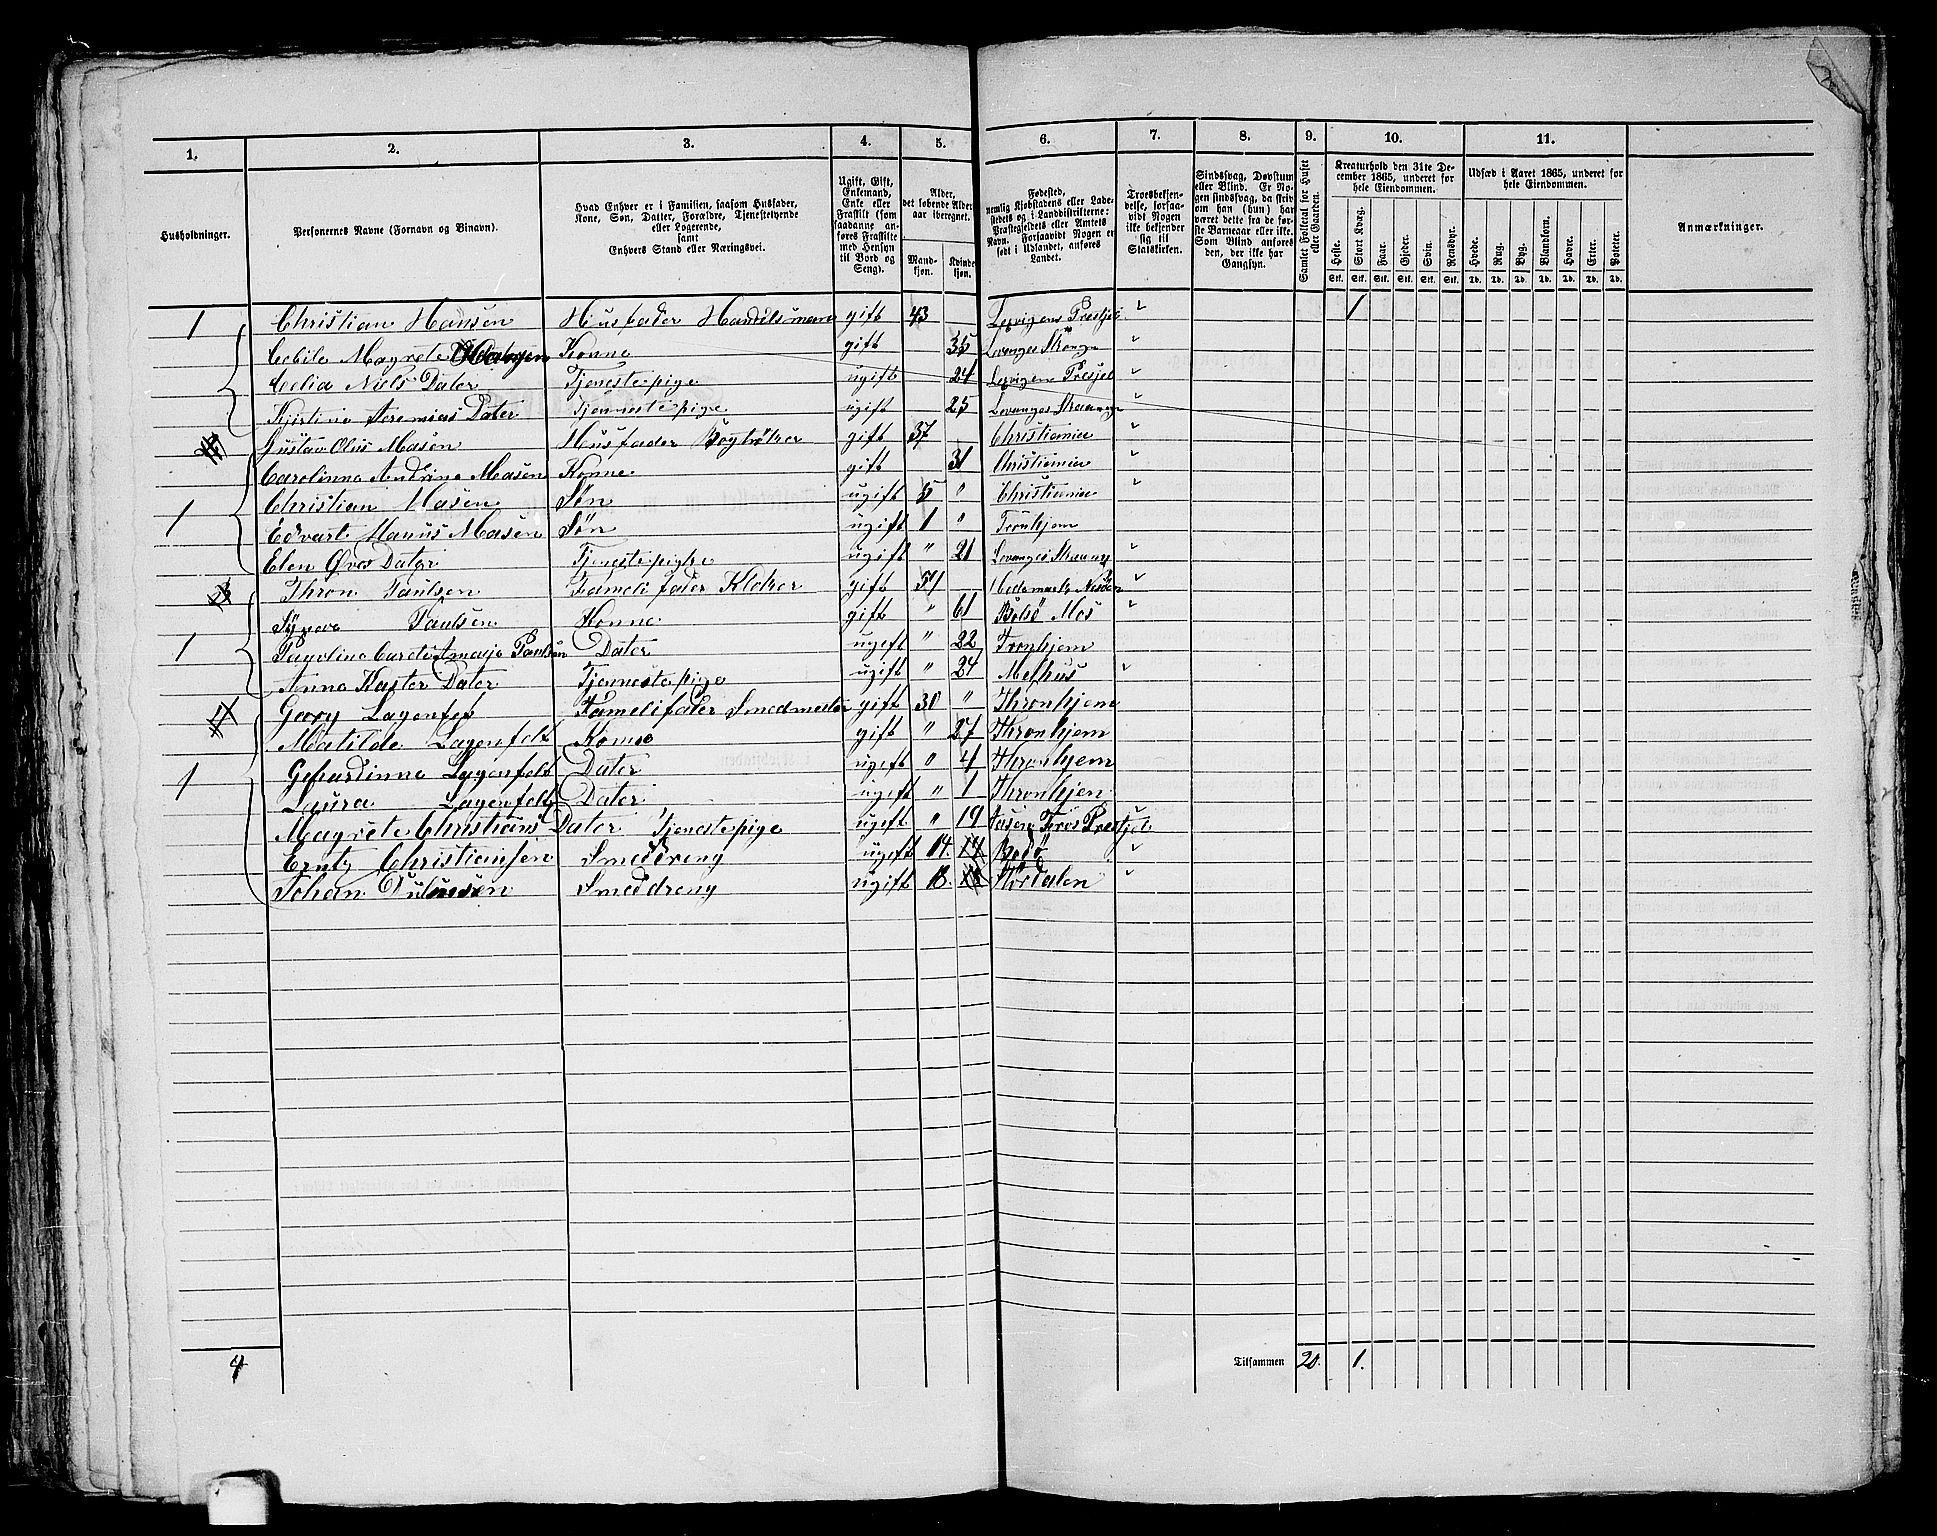 1. 2. 3. 4. 5. 6. 7. 8. 9. 10. 11.
Husholdninger.
Personernes Navne (Fornavn og Binavn).
Hvad Enhver er i Familien, saasom Husfader,
Kone, Søn, Datter, Forældre, Tjenestetyende
eller Logerende,
samt
Enhvers Stand eller Næringsvei.
Ugift, Gift,
Enkemand,
Enke eller
Fraskilt (som
saadanne anføres
Fraskilte
med Hensyn
til Bord og
Seng).
Alder,
det løbende Alders
aar iberegnet.
Mandkjøn.
Kvindekjøn.
Fødested,
nemlig Kjøbstadens eller Ladestedets
og i Landdistrikterne:
Præstegjeldets eller Amtets
Navn. Forsaavidt Nogen er
født i Udlandet, anføres
Landet.
Troesbekjendelse,
forsaavidt
Nogen
ikke bekjender
sig til
Statskirken.
Sindssvag, Døvstum
eller Blind. Er Nogen
sindssvag, da skrives
om han (hun) har
været dette fra de første
Barneaar eller ikke.
Som Blind anføres
den, der ikke har
Gangsyn.
Samlet Folketal for Huset
eller Gaarden.
Kreaturhold den 31te December
1865, underet for
hele Eiendommen.
Heste. Stort Kvæg. Faar. Gjeder. Svin. Rensdyr.
Stk. Stk. Stk. Stk. Stk. Stk.
Udsæd i Aaret 1865, underet for
hele Eiendommen.
Hvede. Rug. Byg. Blandkorn. Havre. Erter. Poteter.
Td. Td. Td. Td. Td. Td. Td.
Anmærkninger.
1 Christian Hansen Husfader Handelsman gift 43 Lexvigens Prestjel " 1
Cecile Magrete Konne gift 35 Levanger Skongn "
Celia Niels Dater Tjenestepige ugift 24 Lexvigens Presjel "
Kjirtina Jeremias Dater Tjennestepige ugift 25 Levanges Skaangn "
Gustav Olus Masen Husfader Bogtrøker gift 37 Christiania "
Carolinna Andrina Masen Konne gift 31 Christiania "
Christian Masen Søn ugift 5 " Christiania "
1 Edvart Manus Masen Søn ugift 1 " Tronhjem
Elen Dater Tjenestepigke ugift " 21 Levanges Skaangn "
Thron Paulsen Fameli fader Kloker gift 51 "
Synova Paulsen Konne gift " 61 Bolsö Mos "
1 Dater ugift " 22 Tronhjem
Anna Kaster Dater Tjennestepige ugift " 24 Melhus "
Georg Lagenfelt Famelifater Smedmester gift 30 " Thronhjem
Matilde Lagenfelt Konne gift " 27 Thronhjem
1 Gehardinna Lagenfelt Dater ugift " 4 Thronhjem
Laura Lagenfelt Dater ugift " 1 Thronhjen
Magrete Christians Dater Tjenestepige ugift " 19 Aasen Prestjel "
Erntz Christiansen Smeddreng ugift 14. Bodö "
Johan Smeddreng ugift 18. Stördalen "
4
Tilsammen 20. 1.